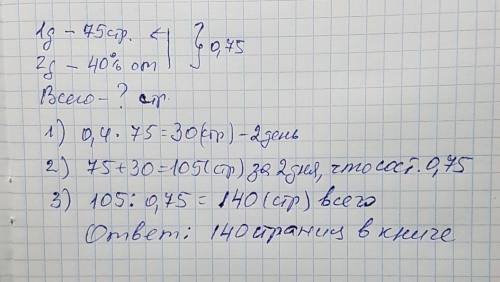 1д – 75стр. ←
2д – 40% от } 0,75
Всего – ? стр.
1) 0,4 · 75 = 30(стр) – 2день
2) 75+30=105(стр) за 2дня, что сост. 0,75
3) 105 : 0,75 = 140(стр) всего
Ответ: 140страниц в книге